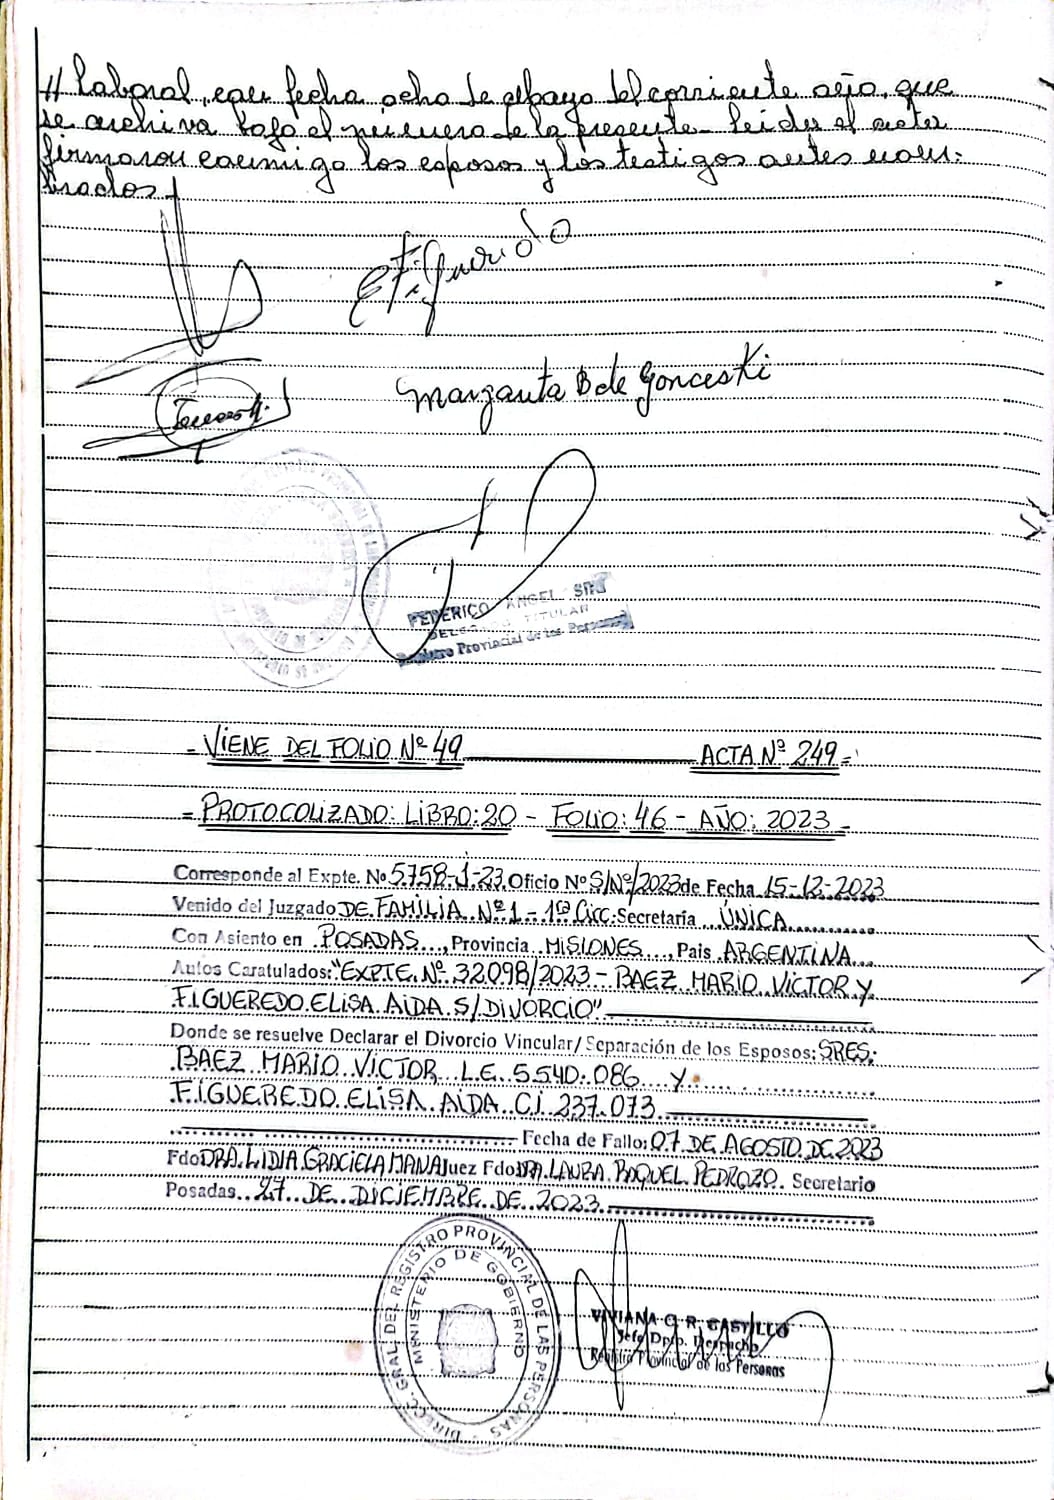 // laboral, con fecha ocho de mayo del corriente año, que
se archiva bajo el número de la presente - leida el acta
firmaron conmigo los esposos y los testigos antes nom-
brados
E. Figueredo
Margarita B de Gonceski
FEDERICO ANGEL
DELEGADO TITULAR
Registro Provincial de las Personas
- VIENE DEL FOLIO Nº 49 ACTA Nº 249 =
= PROTOCOLIZADO: LIBRO: 20 - FOLIO: 46 - AÑO: 2023 -
Corresponde al Expte. No 5758-1-23 Oficio Nº S/Nº/2023 de Fecha 15-12-2023
Venido del Juzgado DE FAMILIA Nº 1 - 1ra Circ. Secretaría ÚNICA
Con Asiento en POSADAS, Provincia MISIONES, Pais ARGENTINA
Autos Caratulados: "EXPTE. Nº 32098/2023 - BAEZ MARIO VICTOR Y
FIGUEREDO ELISA AIDA S/ DIVORCIO"
Donde se resuelve Declarar el Divorcio Vincular/Separación de los Esposos: SRES:
BAEZ MARIO VICTOR L.E. 5.540.086 Y
FIGUEREDO ELISA AIDA C.I. 237.073
Fecha de Fallo: 07 DE AGOSTO DE 2023
Fdo DRA. LIDIA GRACIELA MANA Juez Fdo DRA. LAURA RAQUEL PEDROZO Secretario
Posadas 27 DE DICIEMBRE DE 2023
DIRECC. GRAL DEL REGISTRO PROVINCIAL DE LAS PERSONAS
MINISTERIO DE GOBIERNO
VIVIANA G. R. CASTILLO
Jefe Dpto. Despacho
Registro Provincial de las Personas